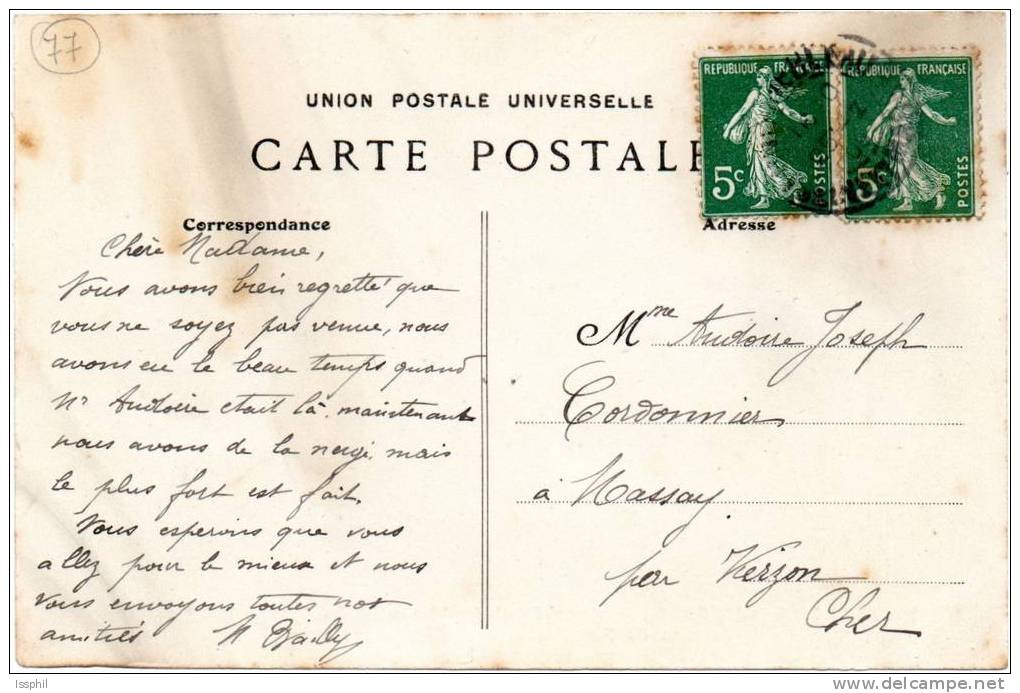 77
UNION POSTALE UNIVERSELLE
CARTE POSTALE
REPUBLIQUE FRANÇAISE
5c
POSTES
REPUBLIQUE FRANÇAISE
5c
POSTES
Correspondance
Chère Madame,
Vous avons bien regretté que
vous ne soyez pas venue, nous
avons eu le beau temps quand
Mr Audoire etait là, maintenant
nous avons de la neige, mais
le plus fort est fait.
Nous esperons que vous
allez pour le mieux et nous
vous envoyons toutes nos
amitiés M Bailly
Adresse
Mme Audoire Joseph
Cordonnier
à Massay
par Vierzon
Cher
Issphil
www.delcampe.net